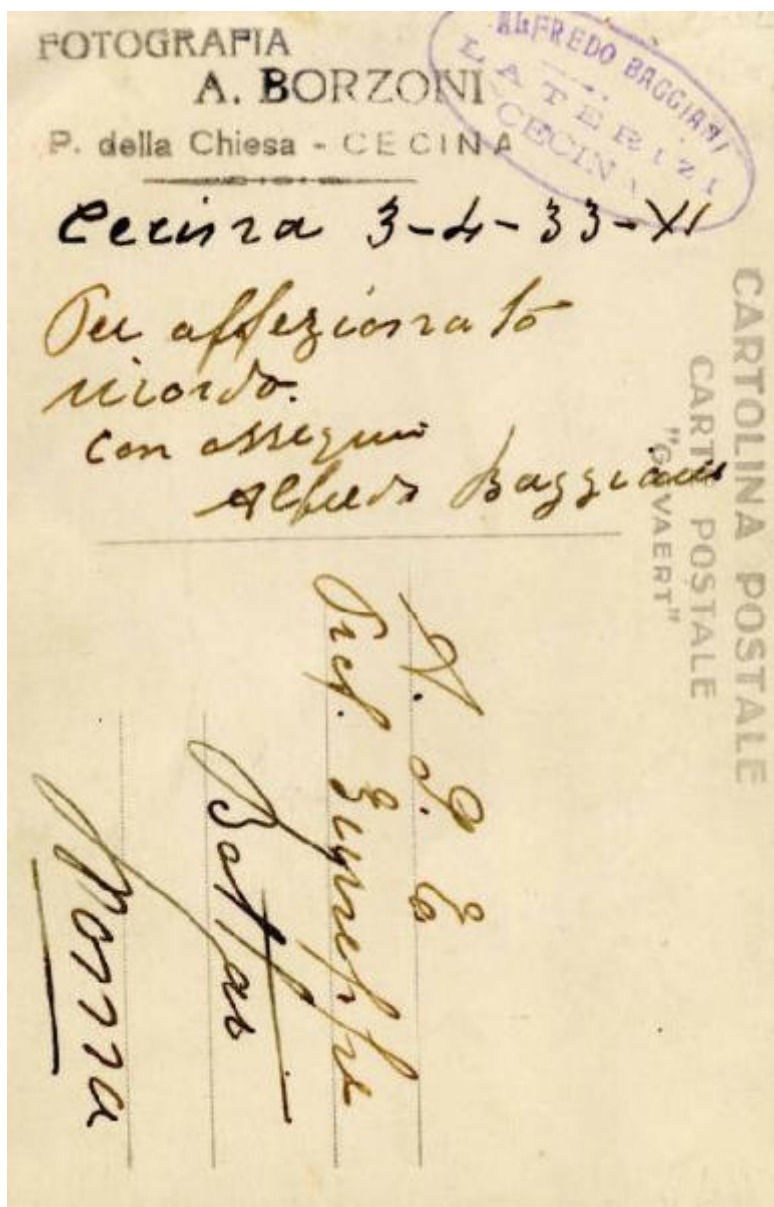 FOTOGRAFIA
A. BORZONI
P. della Chiesa - CECINA
ALFREDO BAGGIANI
LATERIZI
CECINA
Cecina 3-4-33-XI
Per affezionato
ricordo.
con ossequi
Alfredo Baggiani
CARTOLINA POSTALE
CARTE POSTALE
"GEVAERT"
A. S. E.
Prof. Giuseppe
Bottai
Roma